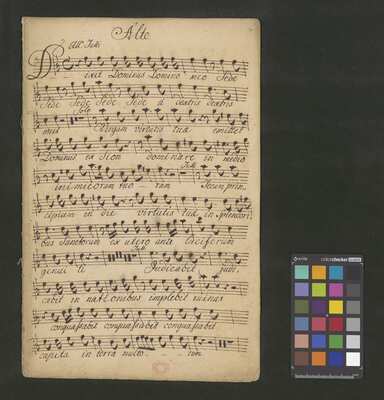 Alto
All. Tutti
Dixit Dominus Domino meo Sede
Sede Sede Sede Sede a dextris dextris
meis Virgam virtutis tuæ emittet
Dominus ex Sion dominare in medio
inimicorum tuo- rum Tecum prin-
cipium in die virtutis tuæ in splendori-
bus Sanctorum ex utero ante luciferum
genui te Judicabit judi-
cabit in nationibus implebit ruinas
conquassabit conquassabit conquassabit
capita in terra multo- rum